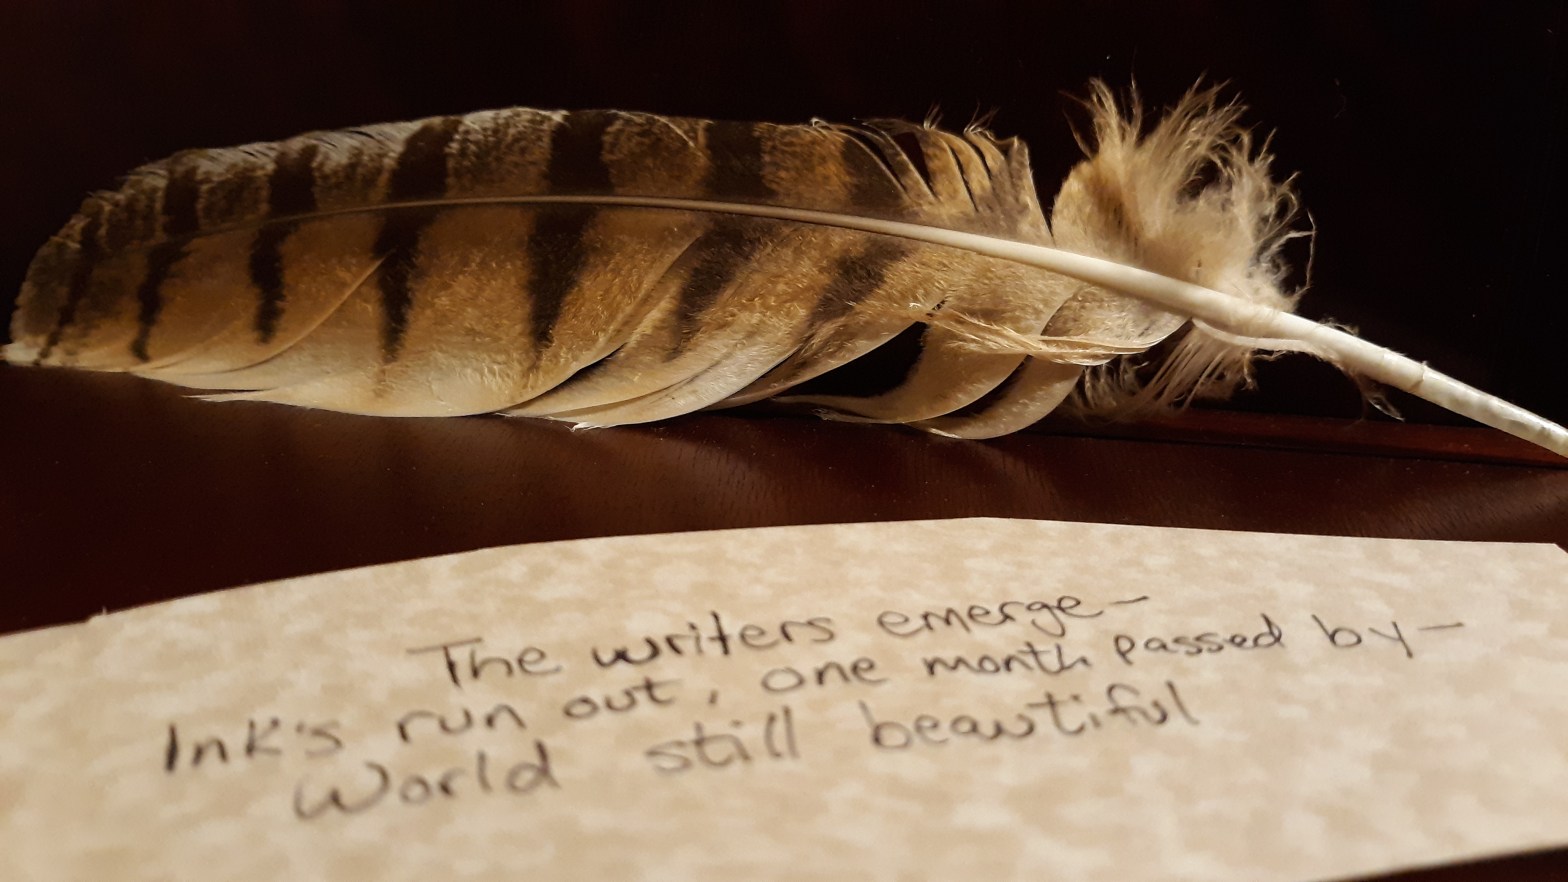 The writers emerge-
Ink's run out, one month passed by-
World still beautiful